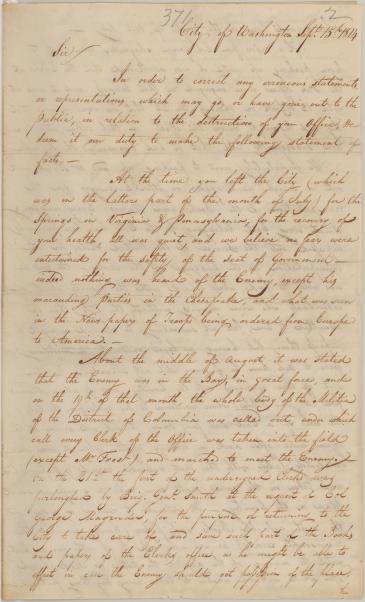 371 2
City of Washington Sept. 15th 1814
Sir,
In order to correct any erroneous statements
or representations which may go, or have gone out to the
Public, in relation to the destruction of your Office, We
deem it our duty to make the following statement of
facts.—
At the time you left the City (which
was in the latter part of the month of July) for the
Springs in Virginia & Pennsylvania, for the recovery of
your health, all was quiet, and we believe no fears were
entertained for the safety of the Seat of Government—
indeed nothing was heard of the Enemy, except his
marauding Parties in the Chesapeake, and what was seen
in the News papers of Troops being ordered from Europe
to America.—
About the middle of August it was stated
that the Enemy was in the Bay, in great force, and
on the 19th of that month the whole body of the Militia
of the District of Columbia was called out, under which
call every Clerk of the Office was taken into the field
(except Mr Frost) and marched to meet the Enemy.
On the 21st the first of the undersigned Clerks was
furloughed by Brig. Genl. Smith at the request of Col
George Magruder, for the purpose of returning to the
City to take care of, and save such part of the Books
and papers of the Clerk's office, as he might be able to
effect in case the Enemy should get possession of the place,